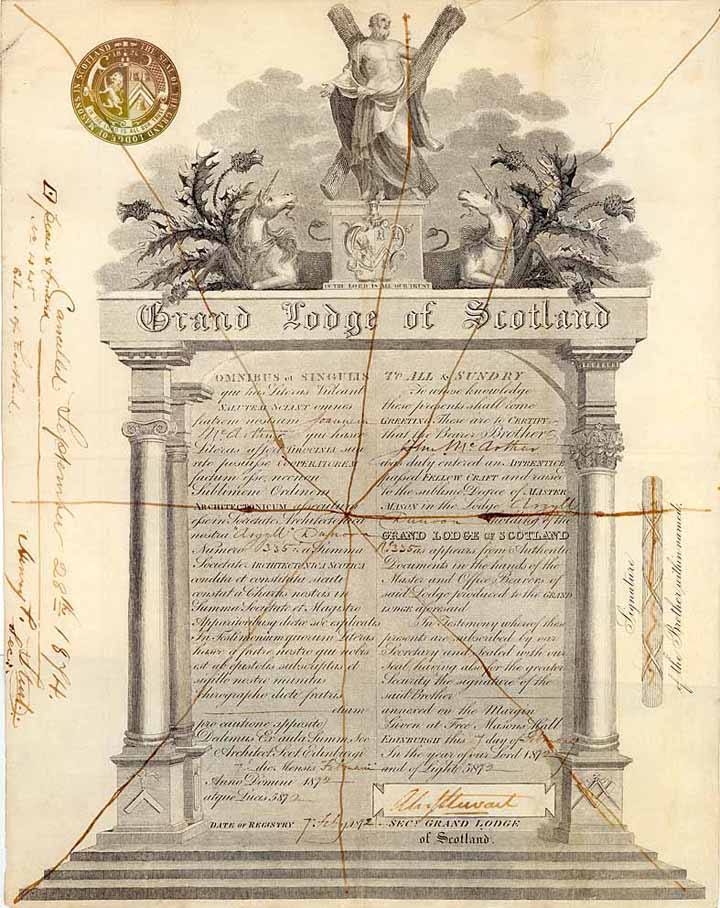 THE SEAL OF THE GRAND LODGE OF MASONS IN SCOTLAND
IN THE LORD IS ALL OUR TRUST
Grand Lodge of Scotland
OMNIBUS et SINGULIS
qui has Literas Viderint
SALUTEM SCIANT omnes
fratrem nostrum Joannem
qui hasce
Literas affert TIROCINIA sua
rite posuisse COOPERATOREM
factum esse, necnon
Sublimem Ordinem
ARCHITECTONICUM
esse in Societate Architectonica
nostra Argyll Dunoon
Numero 335 a Summa
Societate ARCHITECTONICA SCOTICA
condita et constituta sicuti
constat è Chartis nostris in
Summa Societate et Magistro
Apparitoribusq dicte sic explicatis
In Testimonium quorum Literas
hasce a fratre nostro qui nobis
est ab epistolis subscriptas et
sigillo nostro munitas
Chirographo dicti fratris
pro cautione apposito
Dedimus Ex aula Summ. Soc
Architect. Scot. Edinburgi
7 die Mensis
Anno Domini 1872
atque Lucis 5872
DATE OF REGISTRY 7 Feby 1872
TO ALL & SUNDRY
To whose knowledge
these presents shall come
GREETING These are to CERTIFY
that the Bearer Brother
John McArthur
was duly entered an APPRENTICE
passed FELLOW CRAFT and raised
to the sublime Degree of MASTER
MASON in the Lodge Argyll
Dunoon holding of the
GRAND LODGE OF SCOTLAND
No 335 as appears from Authentic
Documents in the hands of the
Master and Office Bearers of
said Lodge produced to the GRAND
LODGE aforesaid
In Testimony whereof these
presents are subscribed by our
Secretary and Sealed with our
Seal having also for the greater
Security the signature of the
said Brother
annexed on the Margin
Given at Free Masons Hall
EDINBURGH this 7 day of
In the year of our Lord 1872
and of Light 5872
Alex J Stewart
SECY GRAND LODGE
of Scotland.
Signature
of the Brother within named.
Cancelled September 28th 1874.
Henry
Secy.